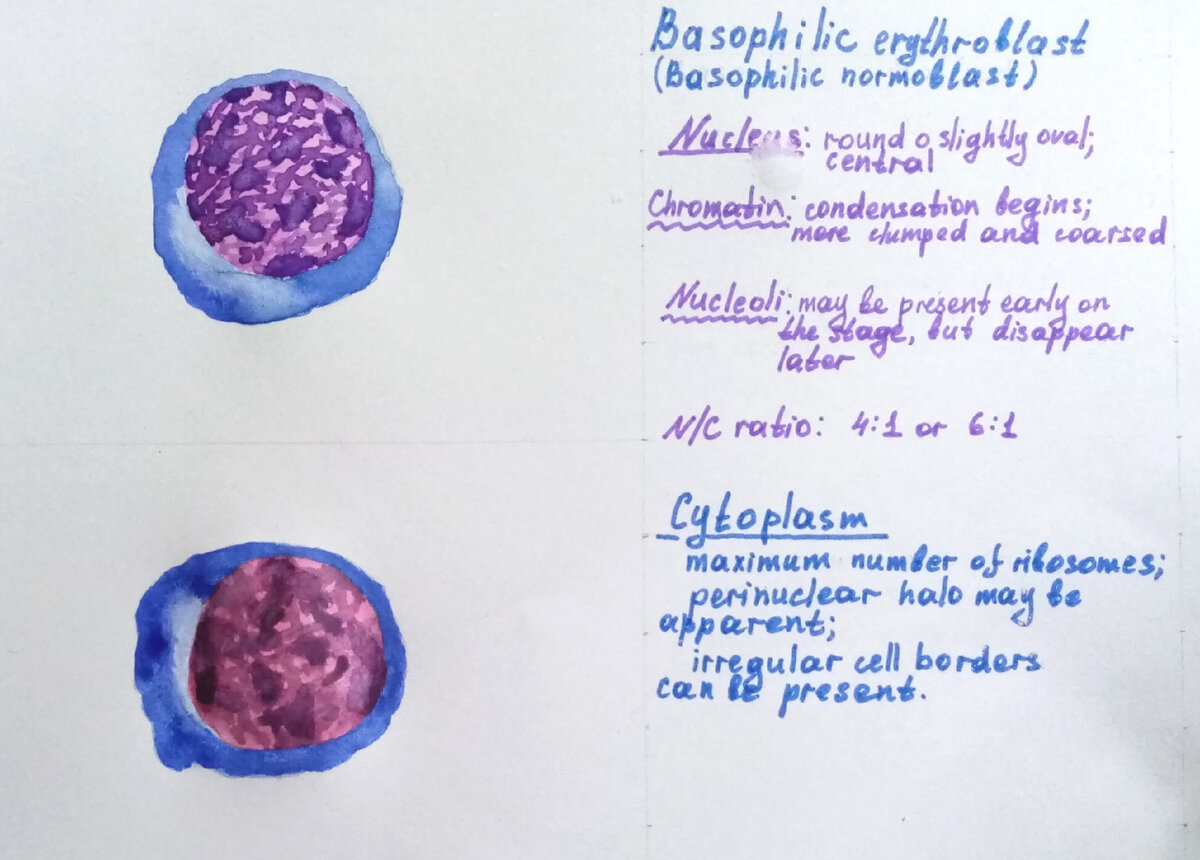 Basophilic erythroblast
(Basophilic normoblast)
Nucleus: round o slightly oval;
central
Chromatin: condensation begins;
more clumped and coarsed
Nucleoli: may be present early on
the stage, but disappear
later
N/C ratio: 4:1 or 6:1
Cytoplasm
maximum number of ribosomes;
perinuclear halo may be
apparent;
irregular cell borders
can be present.